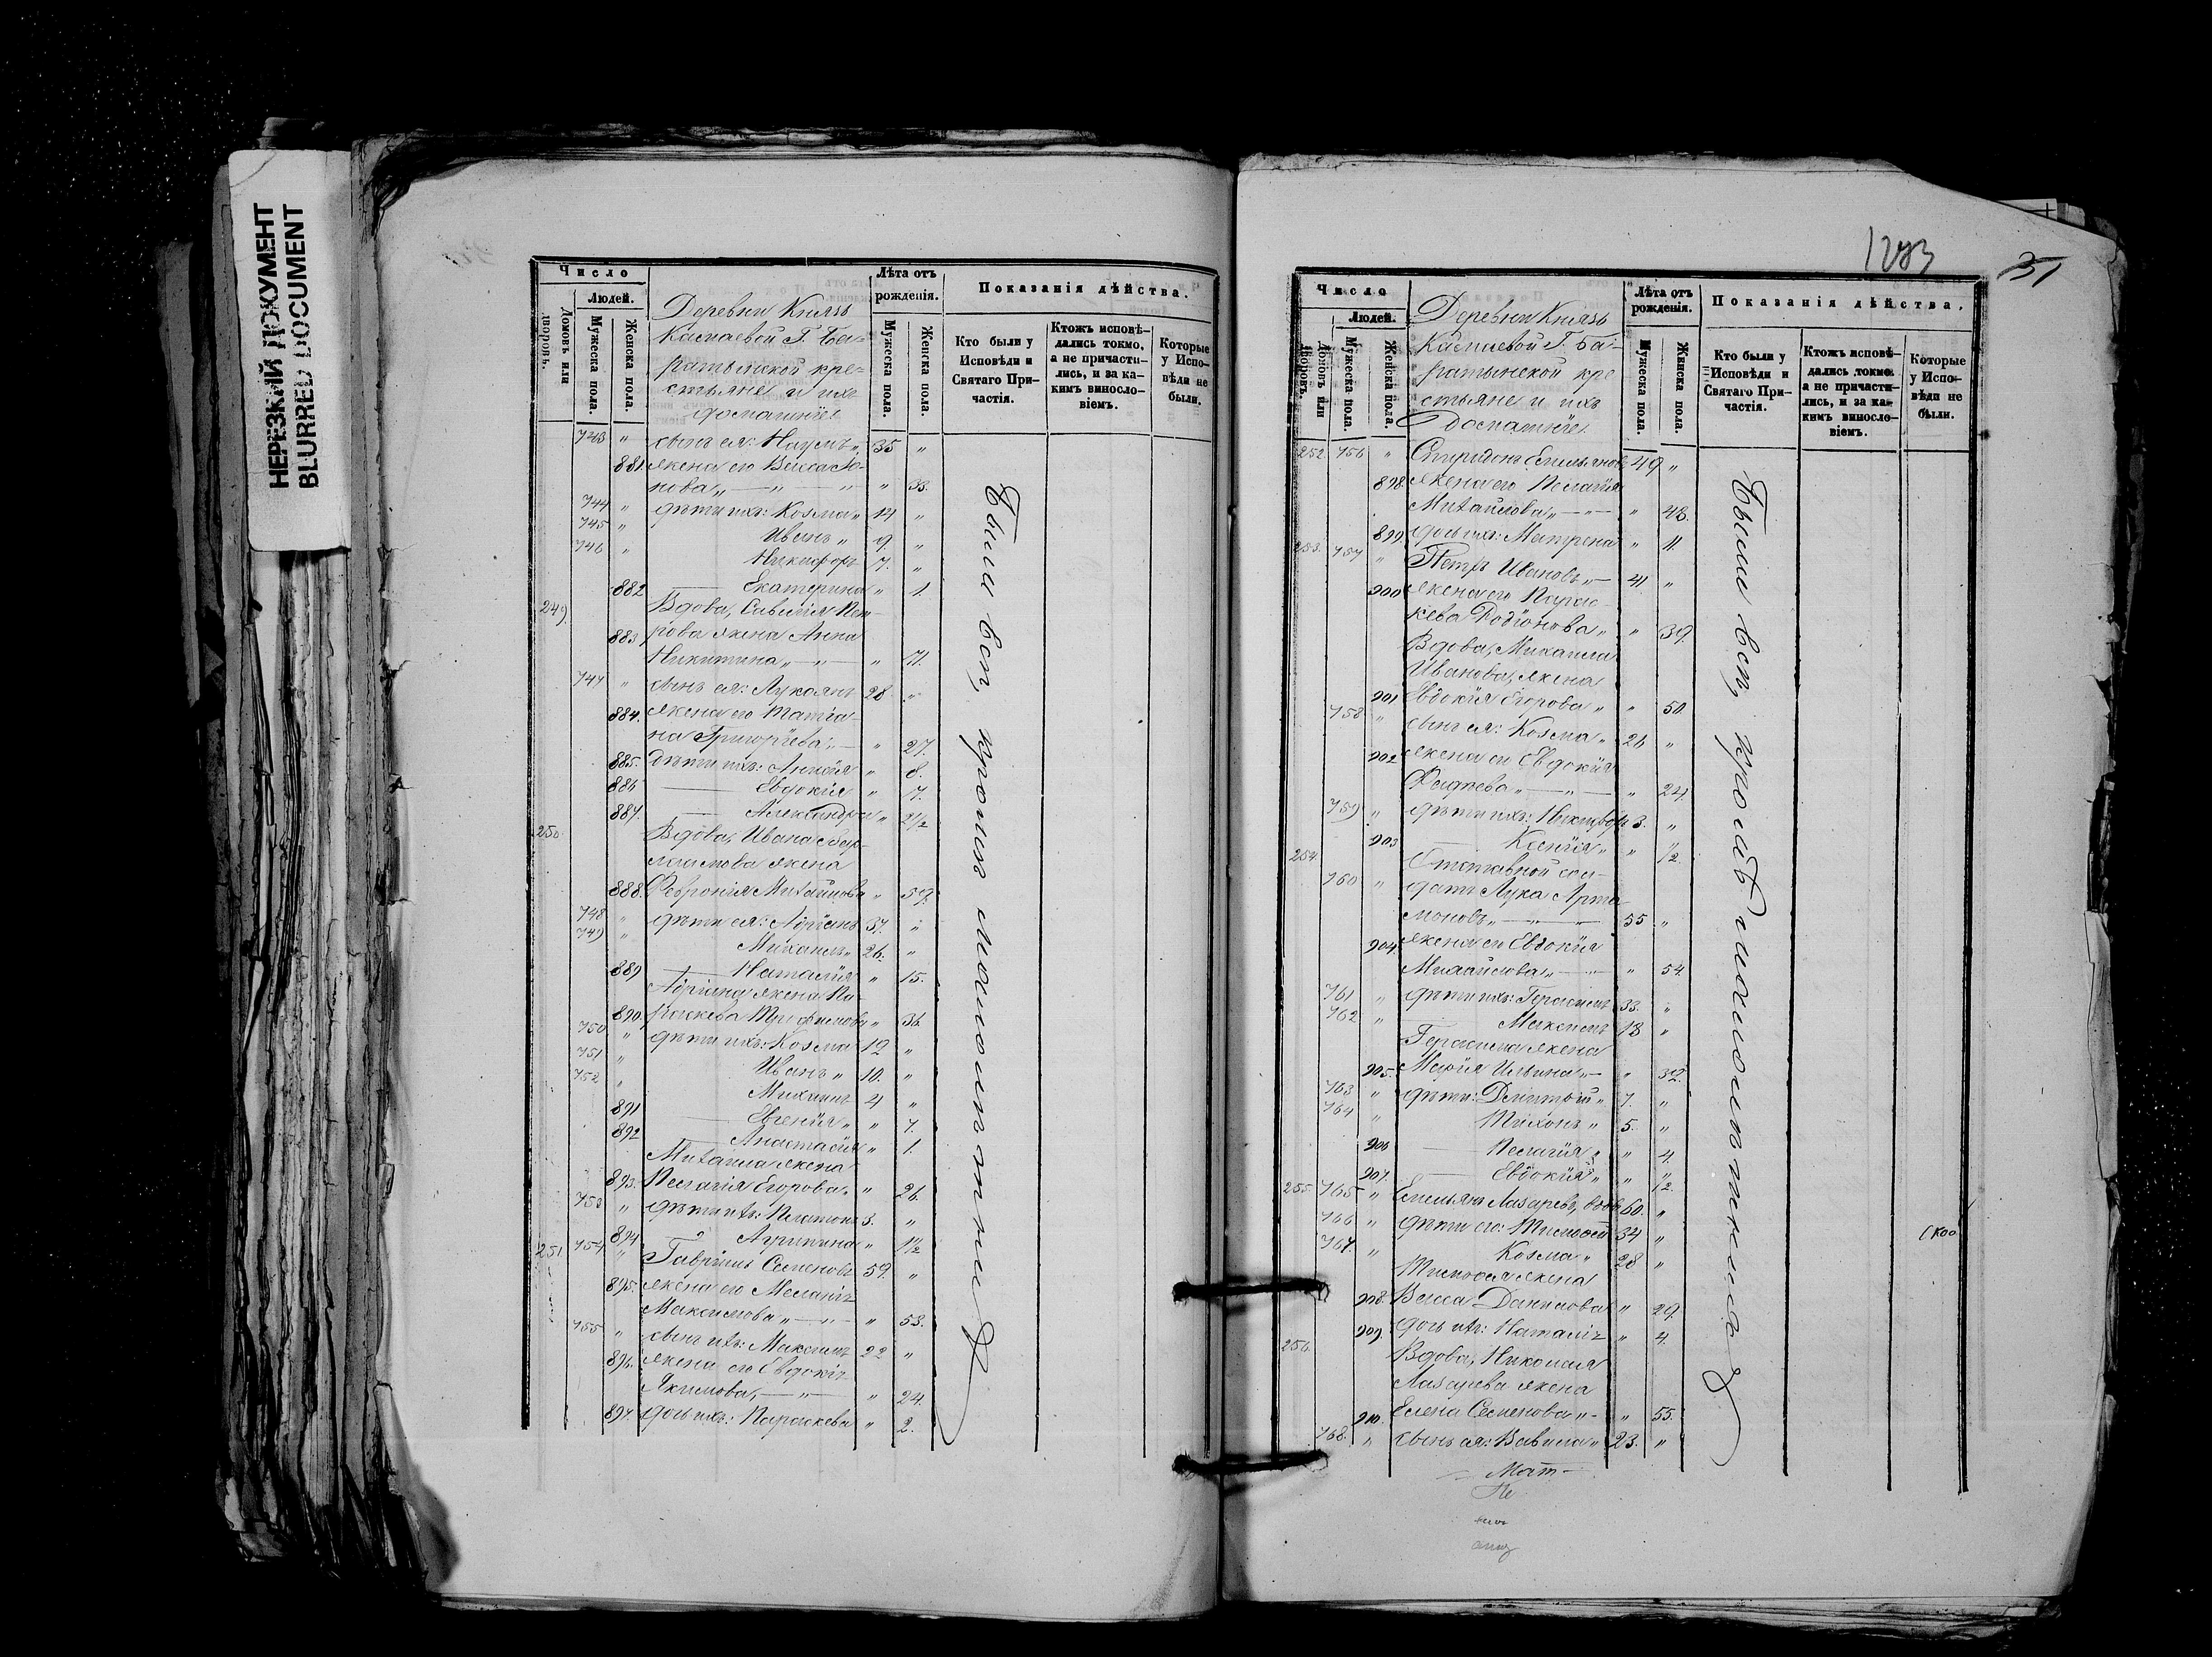 НЕРЕЗКИЙ ДОКУМЕНТ
BLURRED DOCUMENT
Число
Людей.
Домовъ или дворовъ.
Мужеска пола.
Женска пола.
Деревни Князь
Каспаевой Г. Ба-
ратынской кре-
стьяне и ихъ
домашніе
Лѣта отъ рожденія.
Мужеска пола.
Женска пола.
Показанія дѣйства.
Кто были у Исповѣди и Святаго Причастія.
Ктожъ исповѣдались токмо, а не причастились, и за какимъ винословіемъ.
Которые у Исповѣди не были.
743 " сынъ ея: Наумъ " 35 "
881 жена его Васса
нова " — " — " " 33.
744 " дѣти ихъ: Козма " 14 "
745 " Иванъ " 9. "
746 " Никифоръ 7. "
882 — Екатерина " 1
249 Вдова, Савелія Пет-
883 рова жена Анна
Никитина " — " — " 71.
747 " сынъ ея: Лукоянъ 28 "
884. жена его Татіа-
на Григорьева " — " 27.
885. дѣти ихъ: Анисія " 8.
886 — Евдокія " 7.
887. — Александра " 2½
250. Вдова, Ивана Вар-
ламова жена
888. Февронія Михайлова " 59.
748 " дѣти ея: Адріанъ 37. "
749 " Михаилъ " 26. "
889 — Наталія " 15.
Адріана жена Па-
890. раскева Трифонова " 36.
750 " дѣти ихъ: Козма 12 "
751 " Иванъ " 10. "
752 " Михаилъ 4 "
891 — Евгенія " " 7.
892 — Анастасія " 1.
Михаила жена
893. Пелагія Егорова " " 26.
753 " дѣти ихъ: Платонъ 3. "
894 Агрипина " 1½
251 754 " Гавріилъ Семеновъ 59. "
895. жена его Меланія
Максимова " — " — " 53.
755 " сынъ ихъ: Максимъ 22 "
896. жена его Евдокія
Якимова, — " — " 24.
897. дочь ихъ: Параскева " 2.
Были всѣ, кромѣ малолѣтнихъ
1283
31
Число
Людей.
Домовъ или дворовъ.
Мужеска пола.
Женска пола.
Деревни Князь
Каспаевой Г. Ба-
ратынской кре
стьяне и ихъ
Домашніе.
Лѣта отъ рожденія.
Мужеска пола.
Женска пола.
Показанія дѣйства.
Кто были у Исповѣди и Святаго Причастія.
Ктожъ исповѣдались токмо, а не причастились, и за какимъ винословіемъ.
Которые у Исповѣди не были.
252. 756 " Спиридонъ Емельяновъ 49 "
898. жена его Пелагія
Михайлова " — " — " 48.
899. дочь ихъ: Матрена " 11.
253. 757 " Петръ Ивановъ " — 41. "
900 жена его Парас-
кева Родіонова " " 39.
Вдова, Михаила
Иванова, жена
901 Евдокія Егорова " " 50.
758 " сынъ ея: Козма " 26 "
902 жена его Евдокія
Фадѣева " — " — " 24.
759 " дѣти ихъ: Никифоръ 3. "
903 Ксенія " " ½.
254. Отставной сол-
760 " датъ Лука Арта-
моновъ " — " — 55 "
904. жена его Евдокія
Михайлова " — " — " 54.
761 " дѣти ихъ: Герасимъ 33. "
762 " Максимъ 18 "
Герасима жена
905. Марія Ильина " — " 32.
763 " дѣти: Дмитрій " 7. "
764 " Тихонъ " 5. "
906 — Пелагія " " 4.
907. — Евдокія " " ½.
255. 765 " Емельянъ Лазаревъ, вдовъ 60. "
766 " дѣти его: Тимофей 34 "
767. " Козма " 28 "
Тимофея жена
908. Васса Данилова " 29.
909. дочь ихъ: Наталія " 4.
256. Вдова, Николая
Лазарева жена
910. Елена Семенова " - " 55.
768. " сынъ ея: Вавила " 23. "
Были всѣ, кромѣ малолѣтнихъ
Мат-
Не